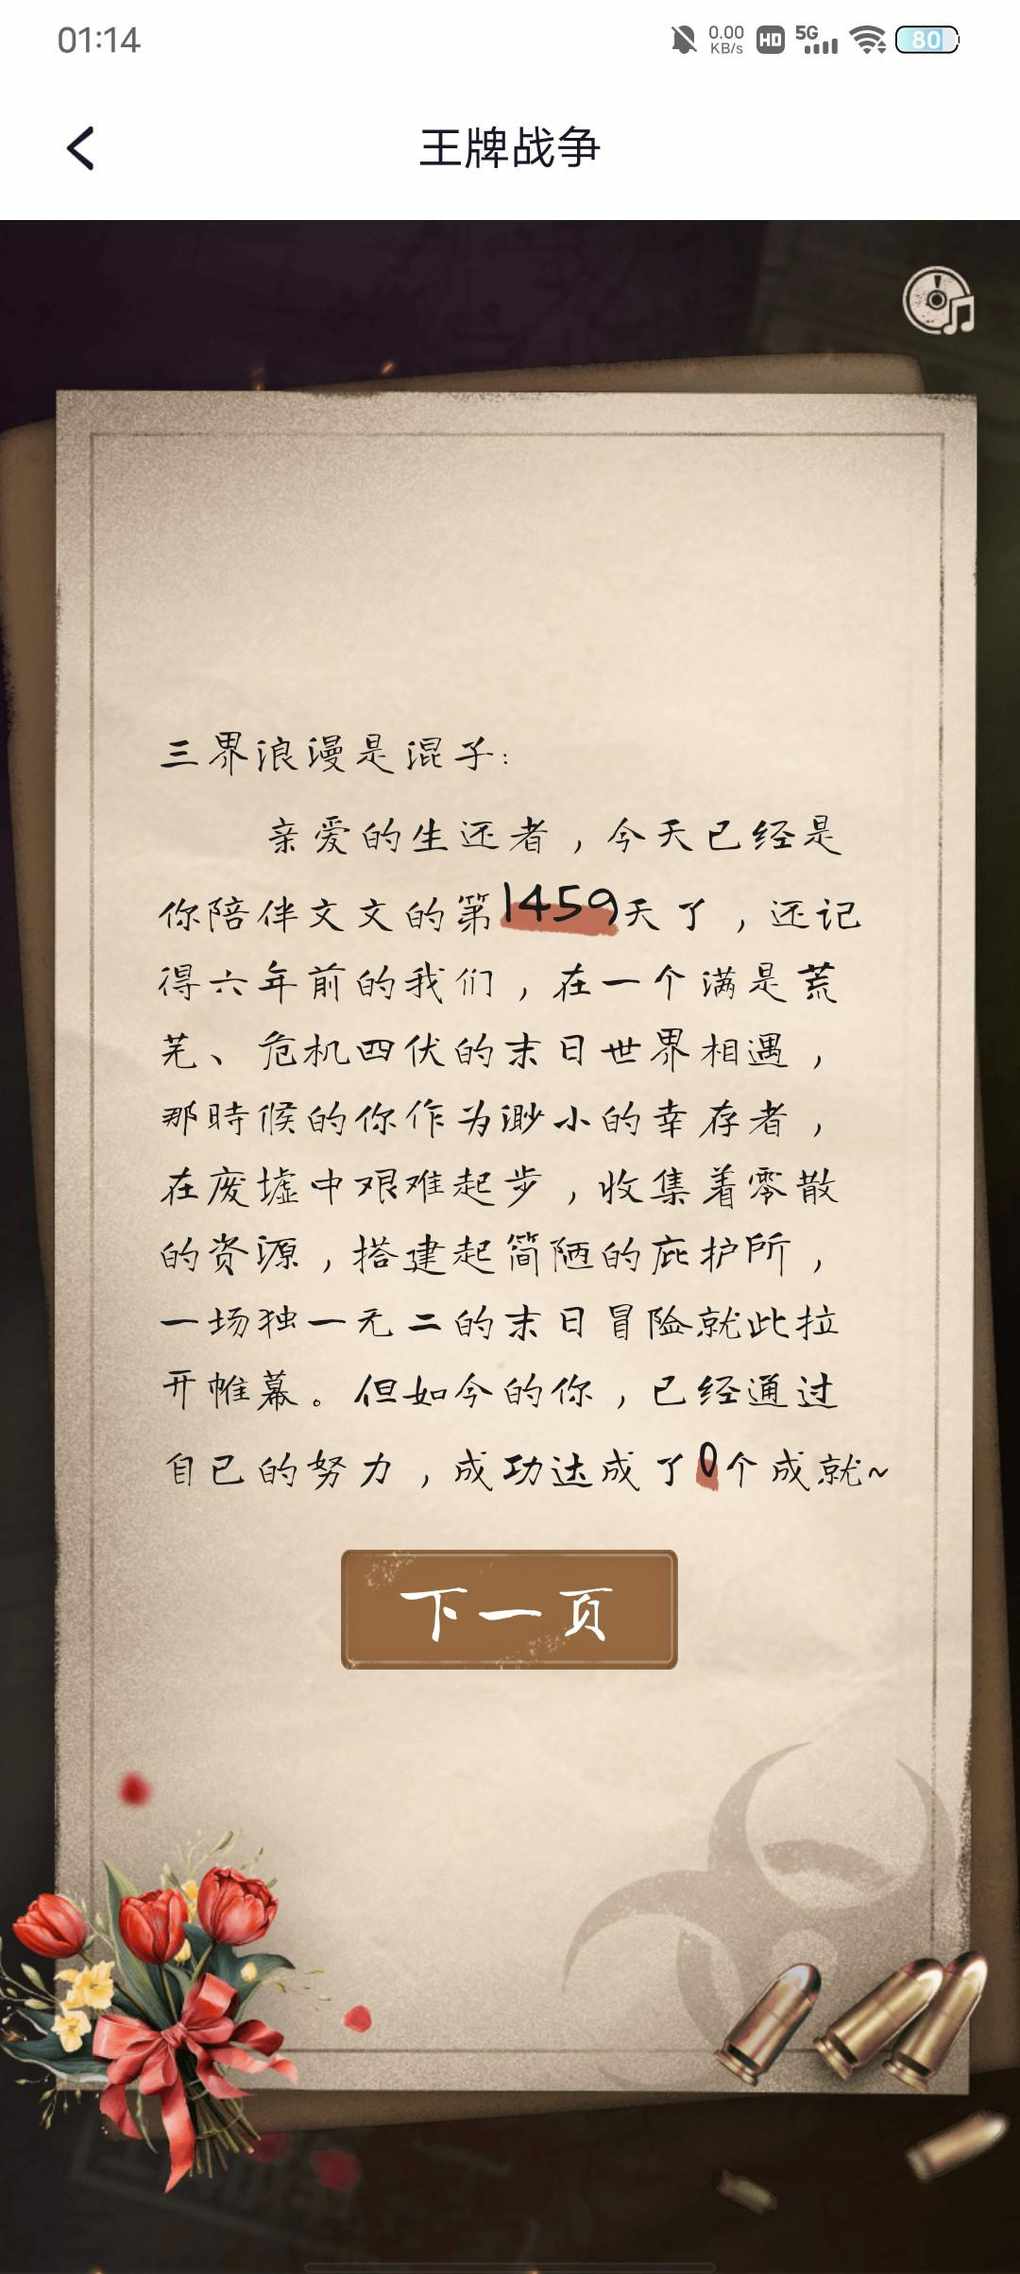 01:14
0.00 KB/s HD 5G 80
王牌战争
三界浪漫是混子：
亲爱的生还者，今天已经是
你陪伴文文的第1459天了，还记
得六年前的我们，在一个满是荒
芜、危机四伏的末日世界相遇，
那時候的你作为渺小的幸存者，
在废墟中艰难起步，收集着零散
的资源，搭建起简陋的庇护所，
一场独一无二的末日冒险就此拉
开帷幕。但如今的你，已经通过
自己的努力，成功达成了0个成就~
下一页